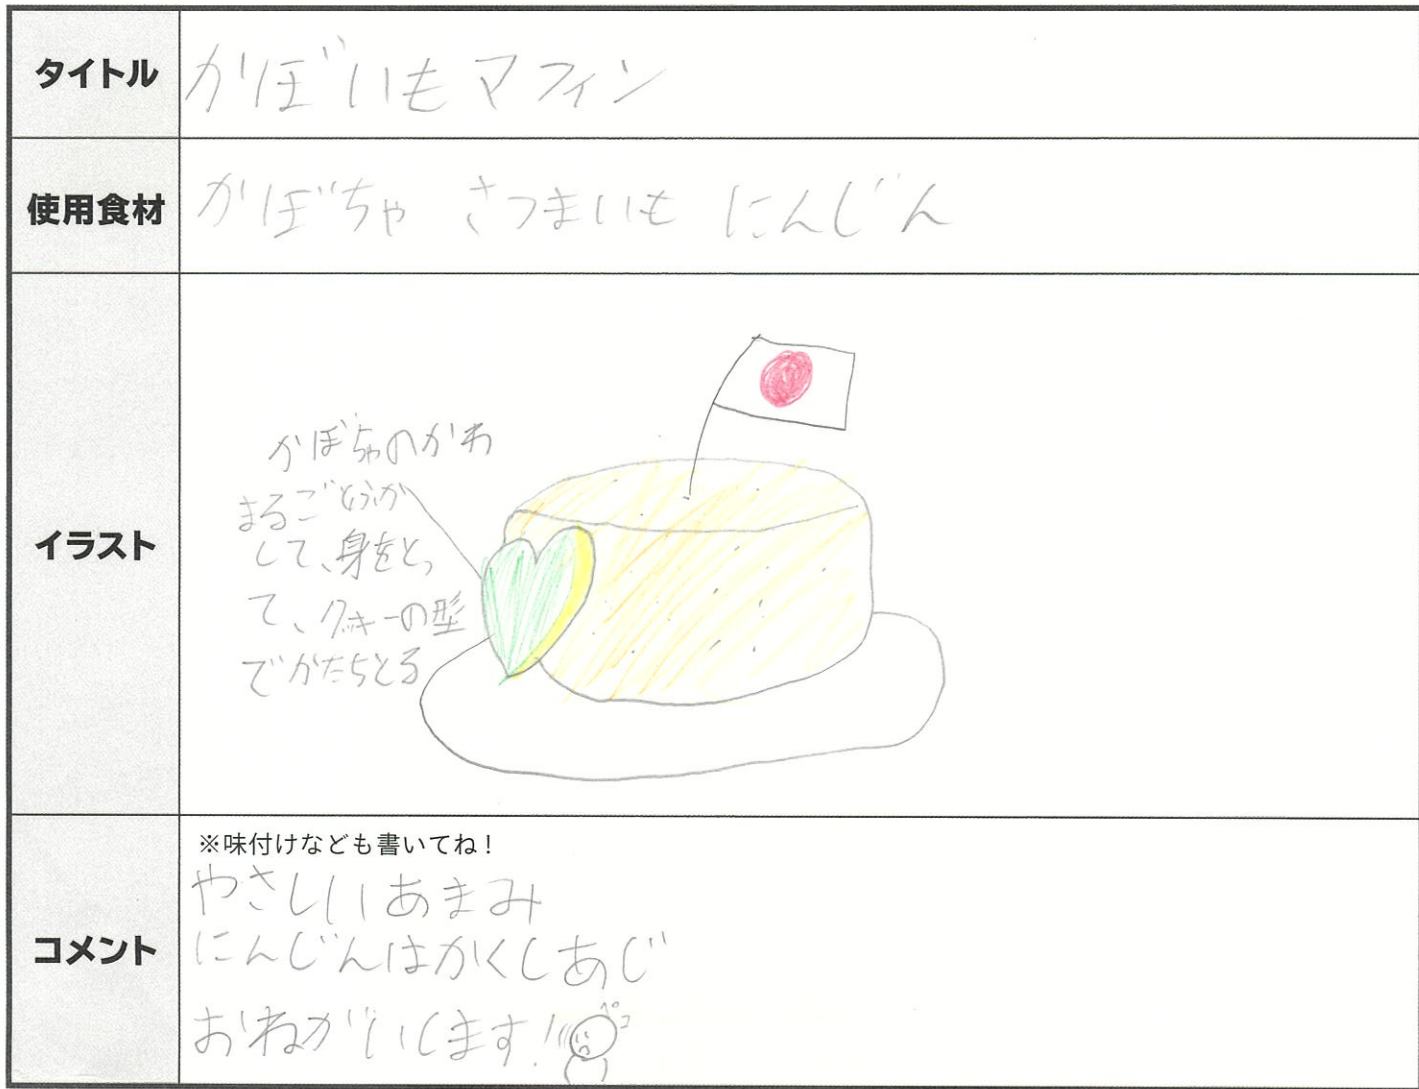 タイトル
かぼいもマフィン
使用食材
かぼちゃ さつまいも にんじん
イラスト
かぼちゃのかわ
まるごとふか
して、身をとっ
て、クッキーの型
でかたちとる
コメント
※味付けなども書いてね！
やさしいあまみ
にんじんはかくしあじ
おねがいします！
ペコ